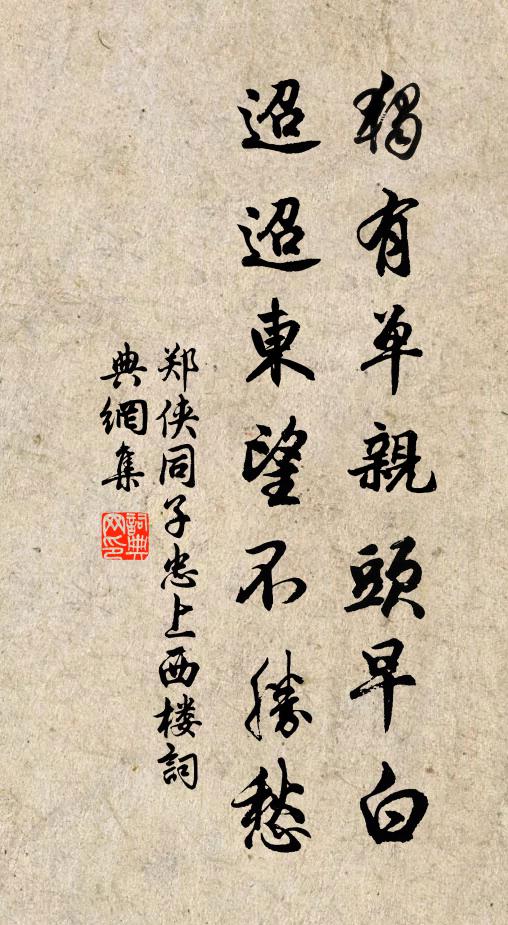 獨有单親頭早白
迢迢東望不勝愁
郑侠同子忠上西楼詞
典網集
詞典
网印